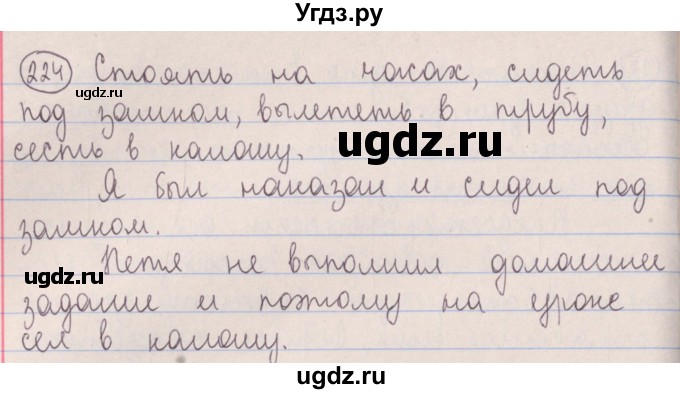 Угдз.ру
224 Стоять на часах, сидеть
ugdz.ru
под замком, вылететь в трубу,
сесть в калошу.
ugdz.ru
Я был наказан и сидел под
замком.
Петя не выполнил домашнее
ugdz.ru
задание и поэтому на уроке
ugdz.ru
сел в калошу.
ugdz.ru